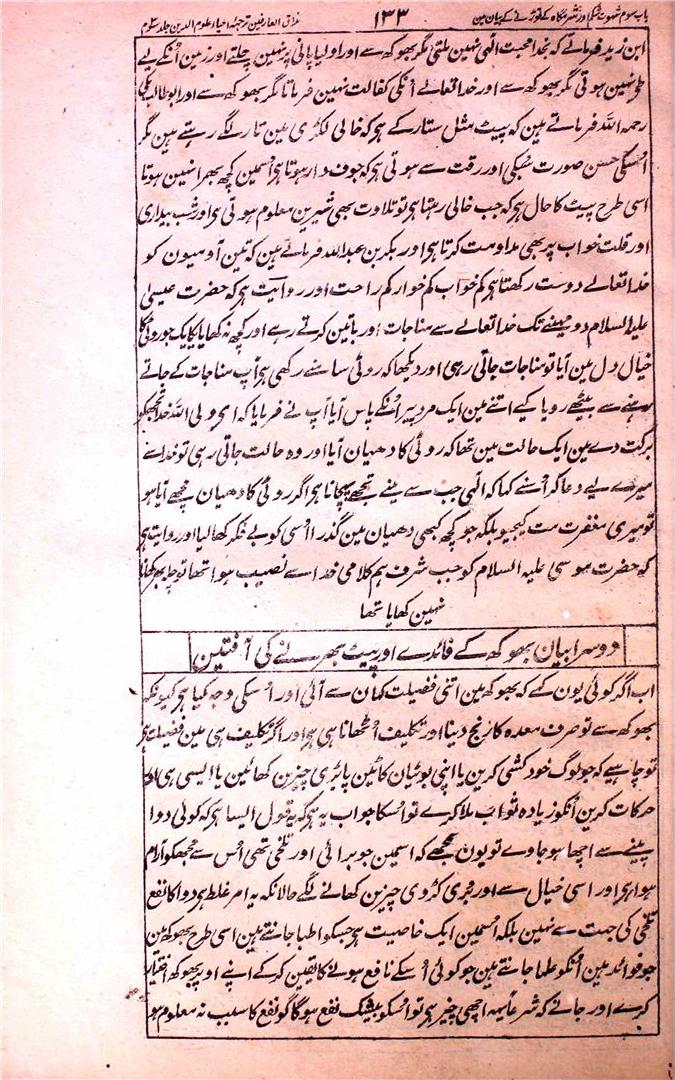 باب سوم شہوت شکم اور شرمگاہ کے توڑنے کے بیان مین ۱۳۳ مذاق العارفین ترجمۂ احیاء علوم الدین جلد سوم
ابن زید فرماتے کہ بخدا محبت الٰہی نہین ملتی مگر بھوکھ سے اور اولیا پانی پر نہین چلتے اور زمین اُنکے لیے
طی نہین ہوتی مگر بھوکھ سے اور خدا تعالے اُنکی کفالت نہین فرماتا مگر بھوکھ سے اور ابوطالب مکی
رحمہ اللہ فرماتے ہین کہ پیٹ مثل ستار کے ہی کہ خالی لکڑی مین تار لگے رہتے ہین مگر
اُسکی حسن صورت سُبکی اور رقت سے ہوتی ہی کہ جوف دار ہوتا ہی اُسمین کچھ بھرا نہین ہوتا
اسی طرح پیٹ کا حال ہی کہ جب خالی رہتا ہی تو تلاوت بھی شیرین معلوم ہوتی ہی اور شب بیداری
اور قلت خواب پر بھی مداومت کرتا ہی اور بکر بن عبداللہ فرماتے ہین کہ تین آدمیون کو
خدا تعالے دوست رکھتا ہی کم خواب کم خوار کم راحت اور روایت ہی کہ حضرت عیسیٰ
علیہ السلام دو مہینے تک خدا تعالے سے مناجات اور باتین کرتے رہے اور کچھ نہ کھایا یکایک جو روٹی کا
خیال دل مین آیا تو مناجات جاتی رہی اور دیکھا کہ روٹی سامنے رکھی ہی آپ مناجات کے جاتے
رہنے سے بیٹھے رویا کیے اتنے مین ایک مرد پیر اُنکے پاس آیا آپ نے فرمایا کہ ای ولی اللہ خدا تجھکو
برکت دے مین ایک حالت مین تھا کہ روٹی کا دھیان آیا اور وہ حالت جاتی رہی تو خدا سے
میرے لیے دعا کر اُسنے کہا کہ الٰہی جب سے مینے تجھے پہچانا ہی اگر روٹی کا دھیان مجھے آیا ہو
تو میری مغفرت مت کیجیو بلکہ جو کچھ کبھی دھیان مین گذرا اُسی کو بے فکر کھا لیا اور روایت ہی
کہ حضرت موسی علیہ السلام کو جب شرف ہم کلامی خدا سے نصیب ہوا تھا تو چلہ بھر کھانا
نہین کھایا تھا
دوسرا بیان بھوکھ کے فائدے اور پیٹ بھرنے کی آفتین
اب اگر کوئی یون کہے کہ بھوکھ مین اتنی فضیلت کہان سے آئی اور اُسکی وجہ کیا ہی کیونکہ
بھوکھ سے تو صرف معدہ کا رنج دینا اور تکلیف اُٹھانا ہی ہی اور اگر تکلیف ہی مین فضیلت ہی
تو چاہیے کہ جو لوگ خود کشی کرین یا اپنی بوٹیان کاٹین یا بُری چیزین کھائین یا ایسی ہی اور
حرکات کرین اُنکو زیادہ ثواب ملا کرے تو اُسکا جواب یہ ہی کہ یہ قول ایسا ہی کہ کوئی دوا
پینے سے اچھا ہو جاوے تو یون سمجھے کہ اسمین جو برائی اور تلخی تھی اُس سے مجھکو آرام
ہوا ہی اور اسی خیال سے اور بُری کڑوی چیزین کھانے لگے حالانکہ یہ امر غلط ہی دوا کا نفع
تلخی کی جہت سے نہین بلکہ اُسمین ایک خاصیت ہی جسکو اطبا جانتے ہین اسی طرح بھوکھ مین
جو فوائد ہین اُنکو علما جانتے ہین جو کوئی اُسکے نافع ہونے کا یقین کرکے اپنے اوپر بھوکھ اختیار
کرے اور جانے کہ شرعاً یہ اچھی چیز ہی تو اُسکو بیشک نفع ہوگا گو نفع کا سبب نہ معلوم ہو